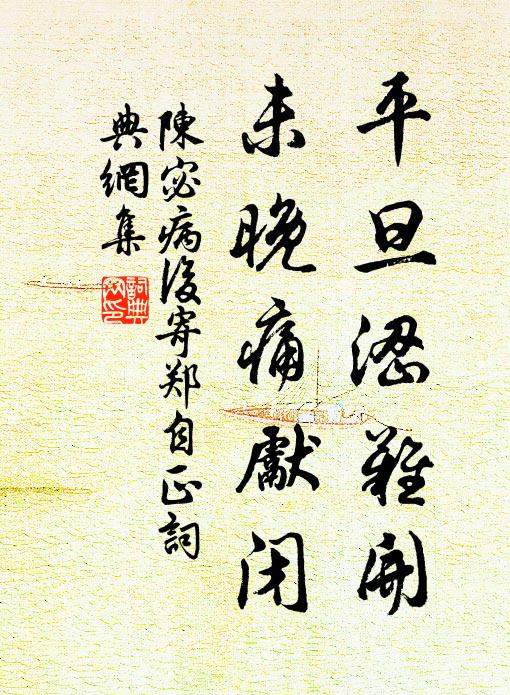 平旦澀難開
未晚痛獻閉
陳宓病後寄郑自正詞
典網集
詞典
网印